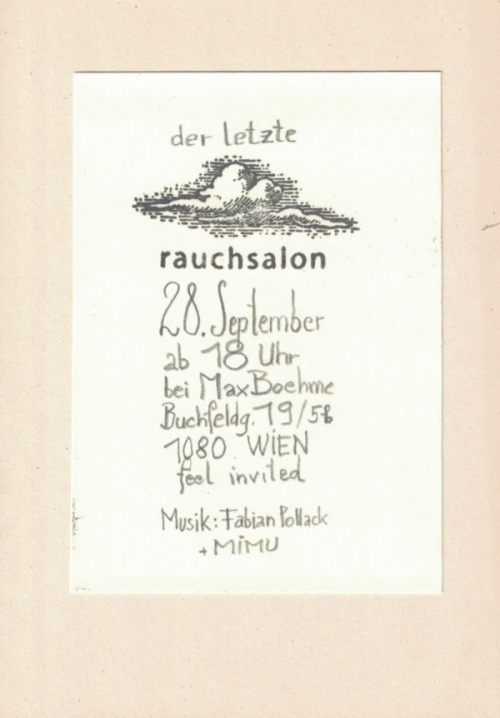 der letzte
rauchsalon
28. September
ab 18 Uhr
bei Max Boehme
Buchfeldg. 19/5-6
1080 WIEN
feel invited
Musik: Fabian Pollack
+ MIMU